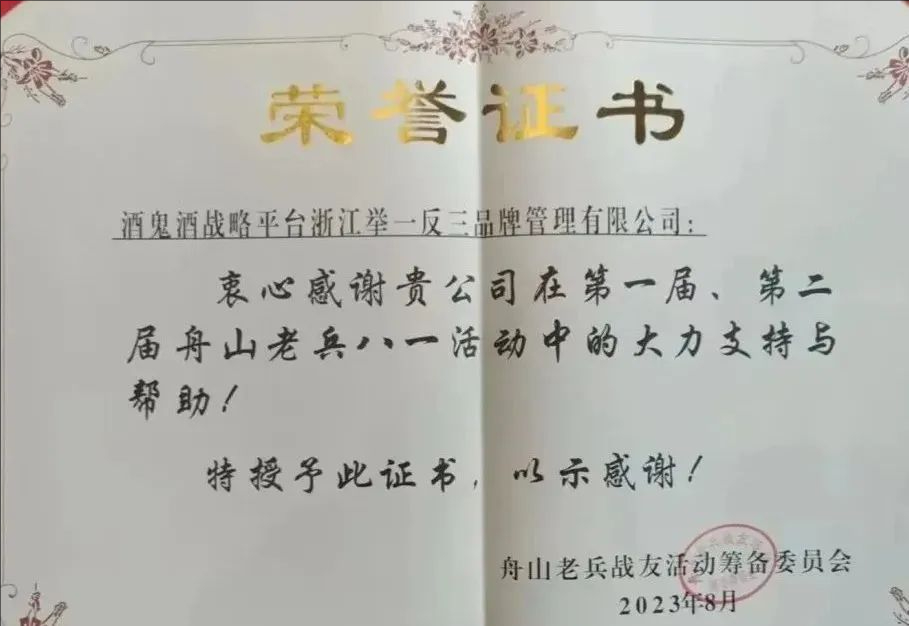 荣誉证书
酒鬼酒战略平台浙江举一反三品牌管理有限公司：
衷心感谢贵公司在第一届、第二
届舟山老兵八一活动中的大力支持与
帮助！
特授予此证书，以示感谢！
舟山老兵战友活动筹备委员会
2023年8月